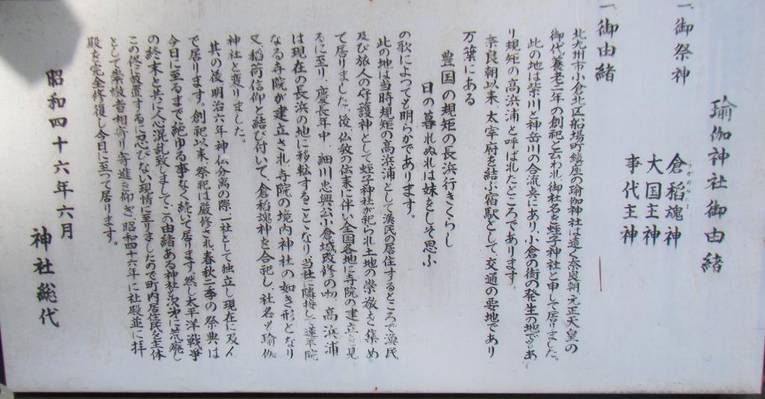 瑜伽神社御由緒
一、御祭神
倉稲魂神
大国主神
事代主神
一、御由緒
北九州市小倉北区船場町鎮座の瑜伽神社は遠く奈良朝元正天皇の
御代養老二年の創祀と云われ御社名を蛭子神社と申して居りました。
此の地は紫川と神岳川の合流点にあり、小倉の街の発生の地であ
り規矩の高浜浦と呼ばれたところであります。
奈良朝以来、太宰府を結ぶ宿駅として、交通の要地であり
万葉にある
豊国の規矩の長浜行きくらし
日の暮れぬれば妹をしぞ思ふ
の歌によっても明らかであります。
此の地は当時規矩の高浜浦として漁民の居住するところで漁民
及び旅人の守護神として蛭子神社が祀られ土地の崇敬を集め
て居りました。後仏教の伝来に伴い全国各地に寺院の建立を見
るに至り、慶長年中、細川忠興公小倉城改修の砌、高浜浦
は現在の長浜の地に移転することとなり、当社に隣接し
なる寺院が建立され寺院の境内神社の如き形となり
又、稲荷信仰と結び付いて、倉稲魂神を合祀し、社名も瑜伽
神社と変りました。
其の後、明治六年神仏分離の際一社として独立し現在に及ん
で居ります。創祀以来、祭祀は厳修され春秋二季の祭典は
今日に至るまで絶ゆる事なく続いて居ります。然し太平洋戦争
の終末と共に人心混乱致しまして、この由緒ある神社も次第に荒廃し
この儘放置するに忍びない現情に至りましたので町内居住民を主体
として崇敬者相寄り寄進を仰ぎ、昭和四十六年に社殿並に拝
殿を完全修復し今日に至って居ります。
昭和四十六年六月
神社総代